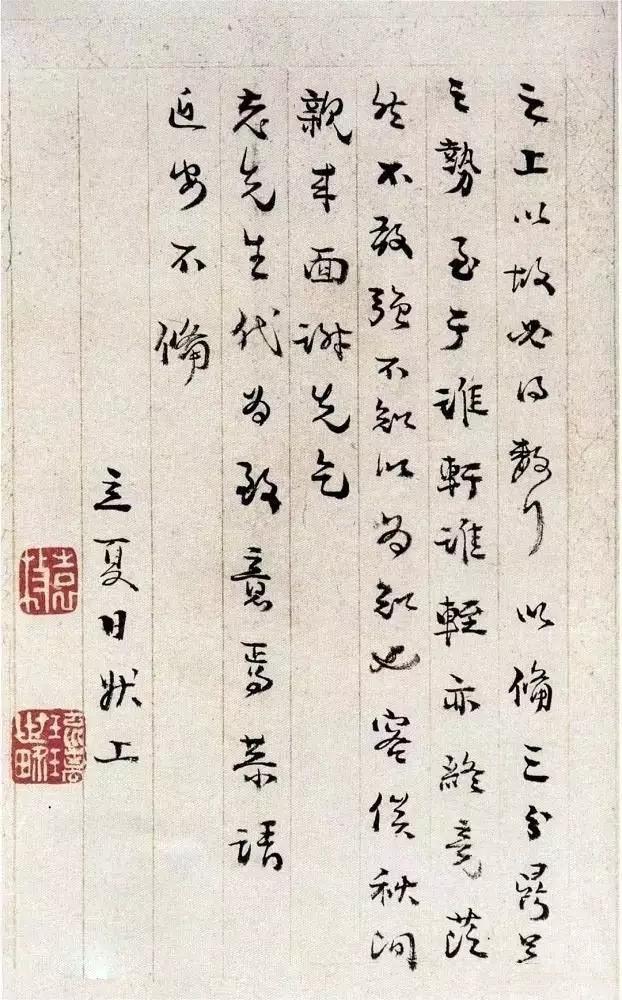 之上以故必得數行 以備三分鼎足
之勢至于誰軒誰輊亦終竟茫
然不敢強不知以為知也容俟秋间
親来面謝先乞
老先生代為致意焉恭請
近安不備
立夏日狀上